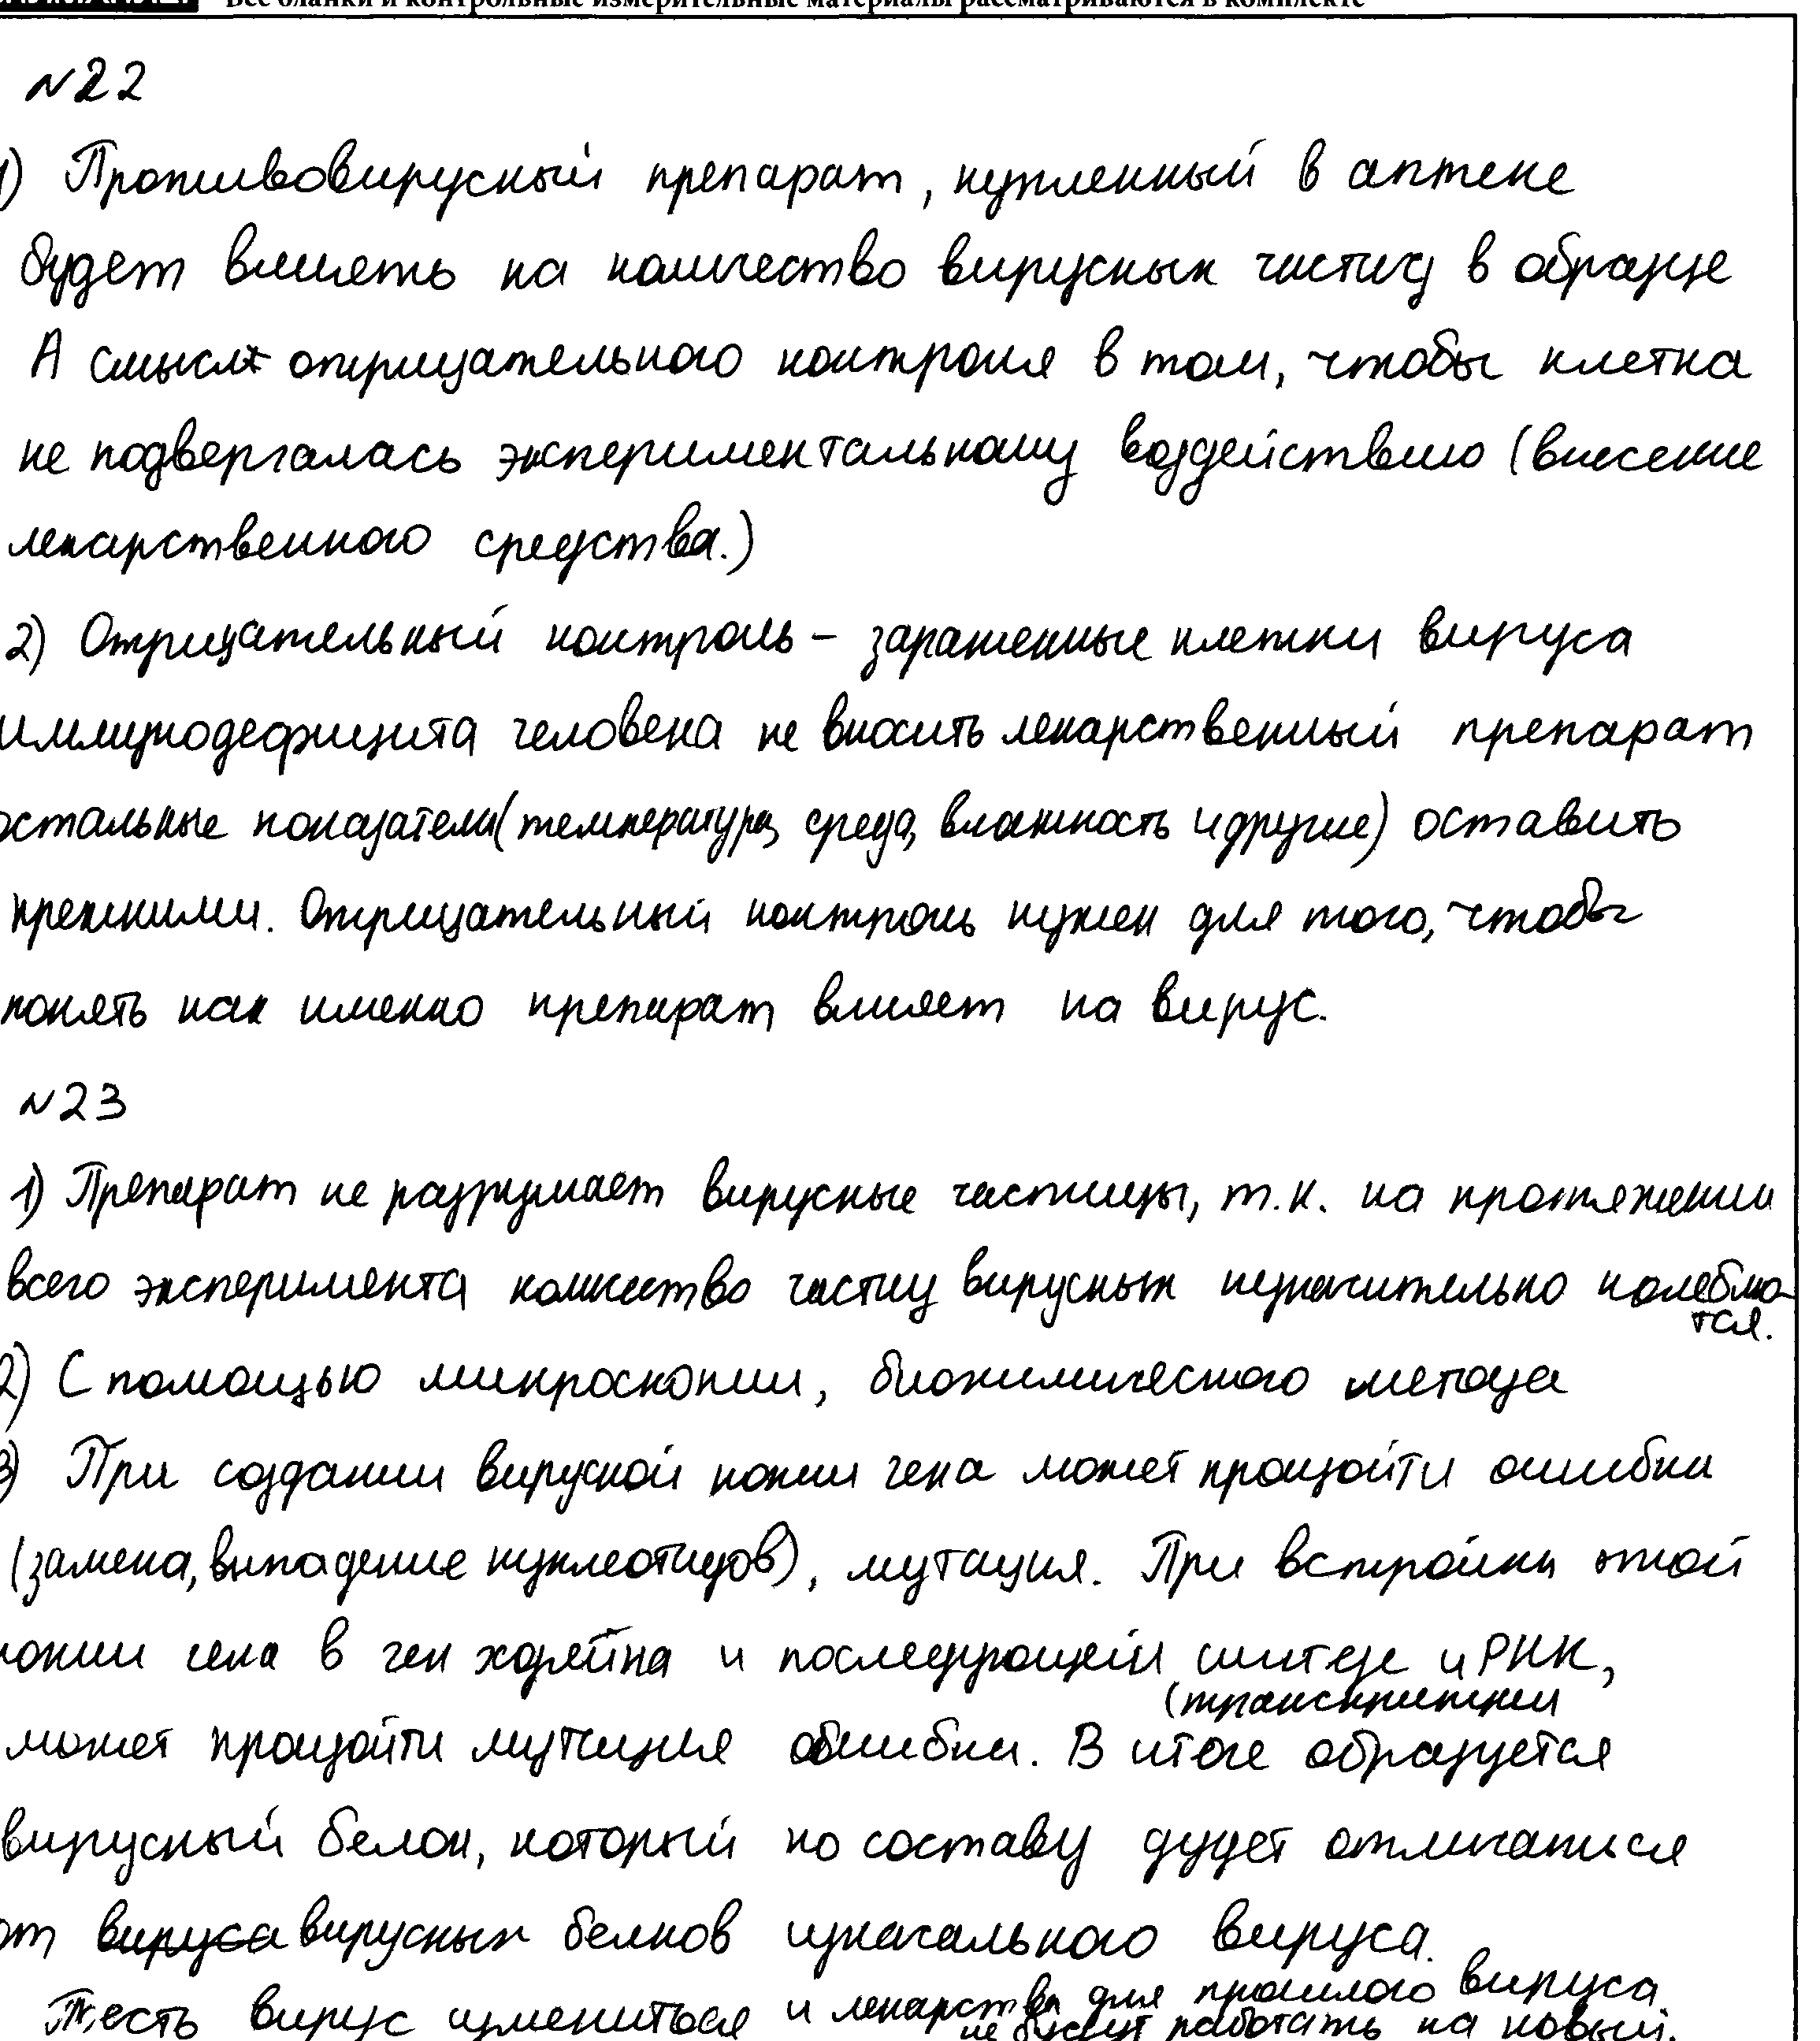 Все бланки и контрольные измерительные материалы рассматриваются в комплекте
№22
1) Противовирусный препарат, купленный в аптеке
будет влиять на количество вирусных частиц в образце
А смысл отрицательного контроля в том, чтобы клетка
не подвергалась экспериментальному воздействию (внесение
лекарственного средства.)
2) Отрицательный контроль – зараженные клетки вируса
иммунодефицита человека не вносить лекарственный препарат
остальные показатели (температура, среда, влажность и другие) оставить
прежними. Отрицательный контроль нужен для того, чтобы
понять как именно препарат влияет на вирус.
№23
1) Препарат не разрушает вирусные частицы, т.к. на протяжении
всего эксперимента количество частиц вирусных незначительно колеблю-
тся.
2) С помощью микроскопии, биохимического метода
3) При создании вирусной копии гена может произойти ошибки
(замена, выпадение нуклеотидов), мутация. При встройки этой
копии гена в ген хозяйна и последующей синтезе иРНК,
(транскрипции
может произойти мутация ошибки. В итоге образуется
вирусный белок, который по составу дудет отличаться
от вируса вирусных белков изначального вируса.
Т.есть вирус измениться и лекарства для прошлого вируса
не будут работать на новый.